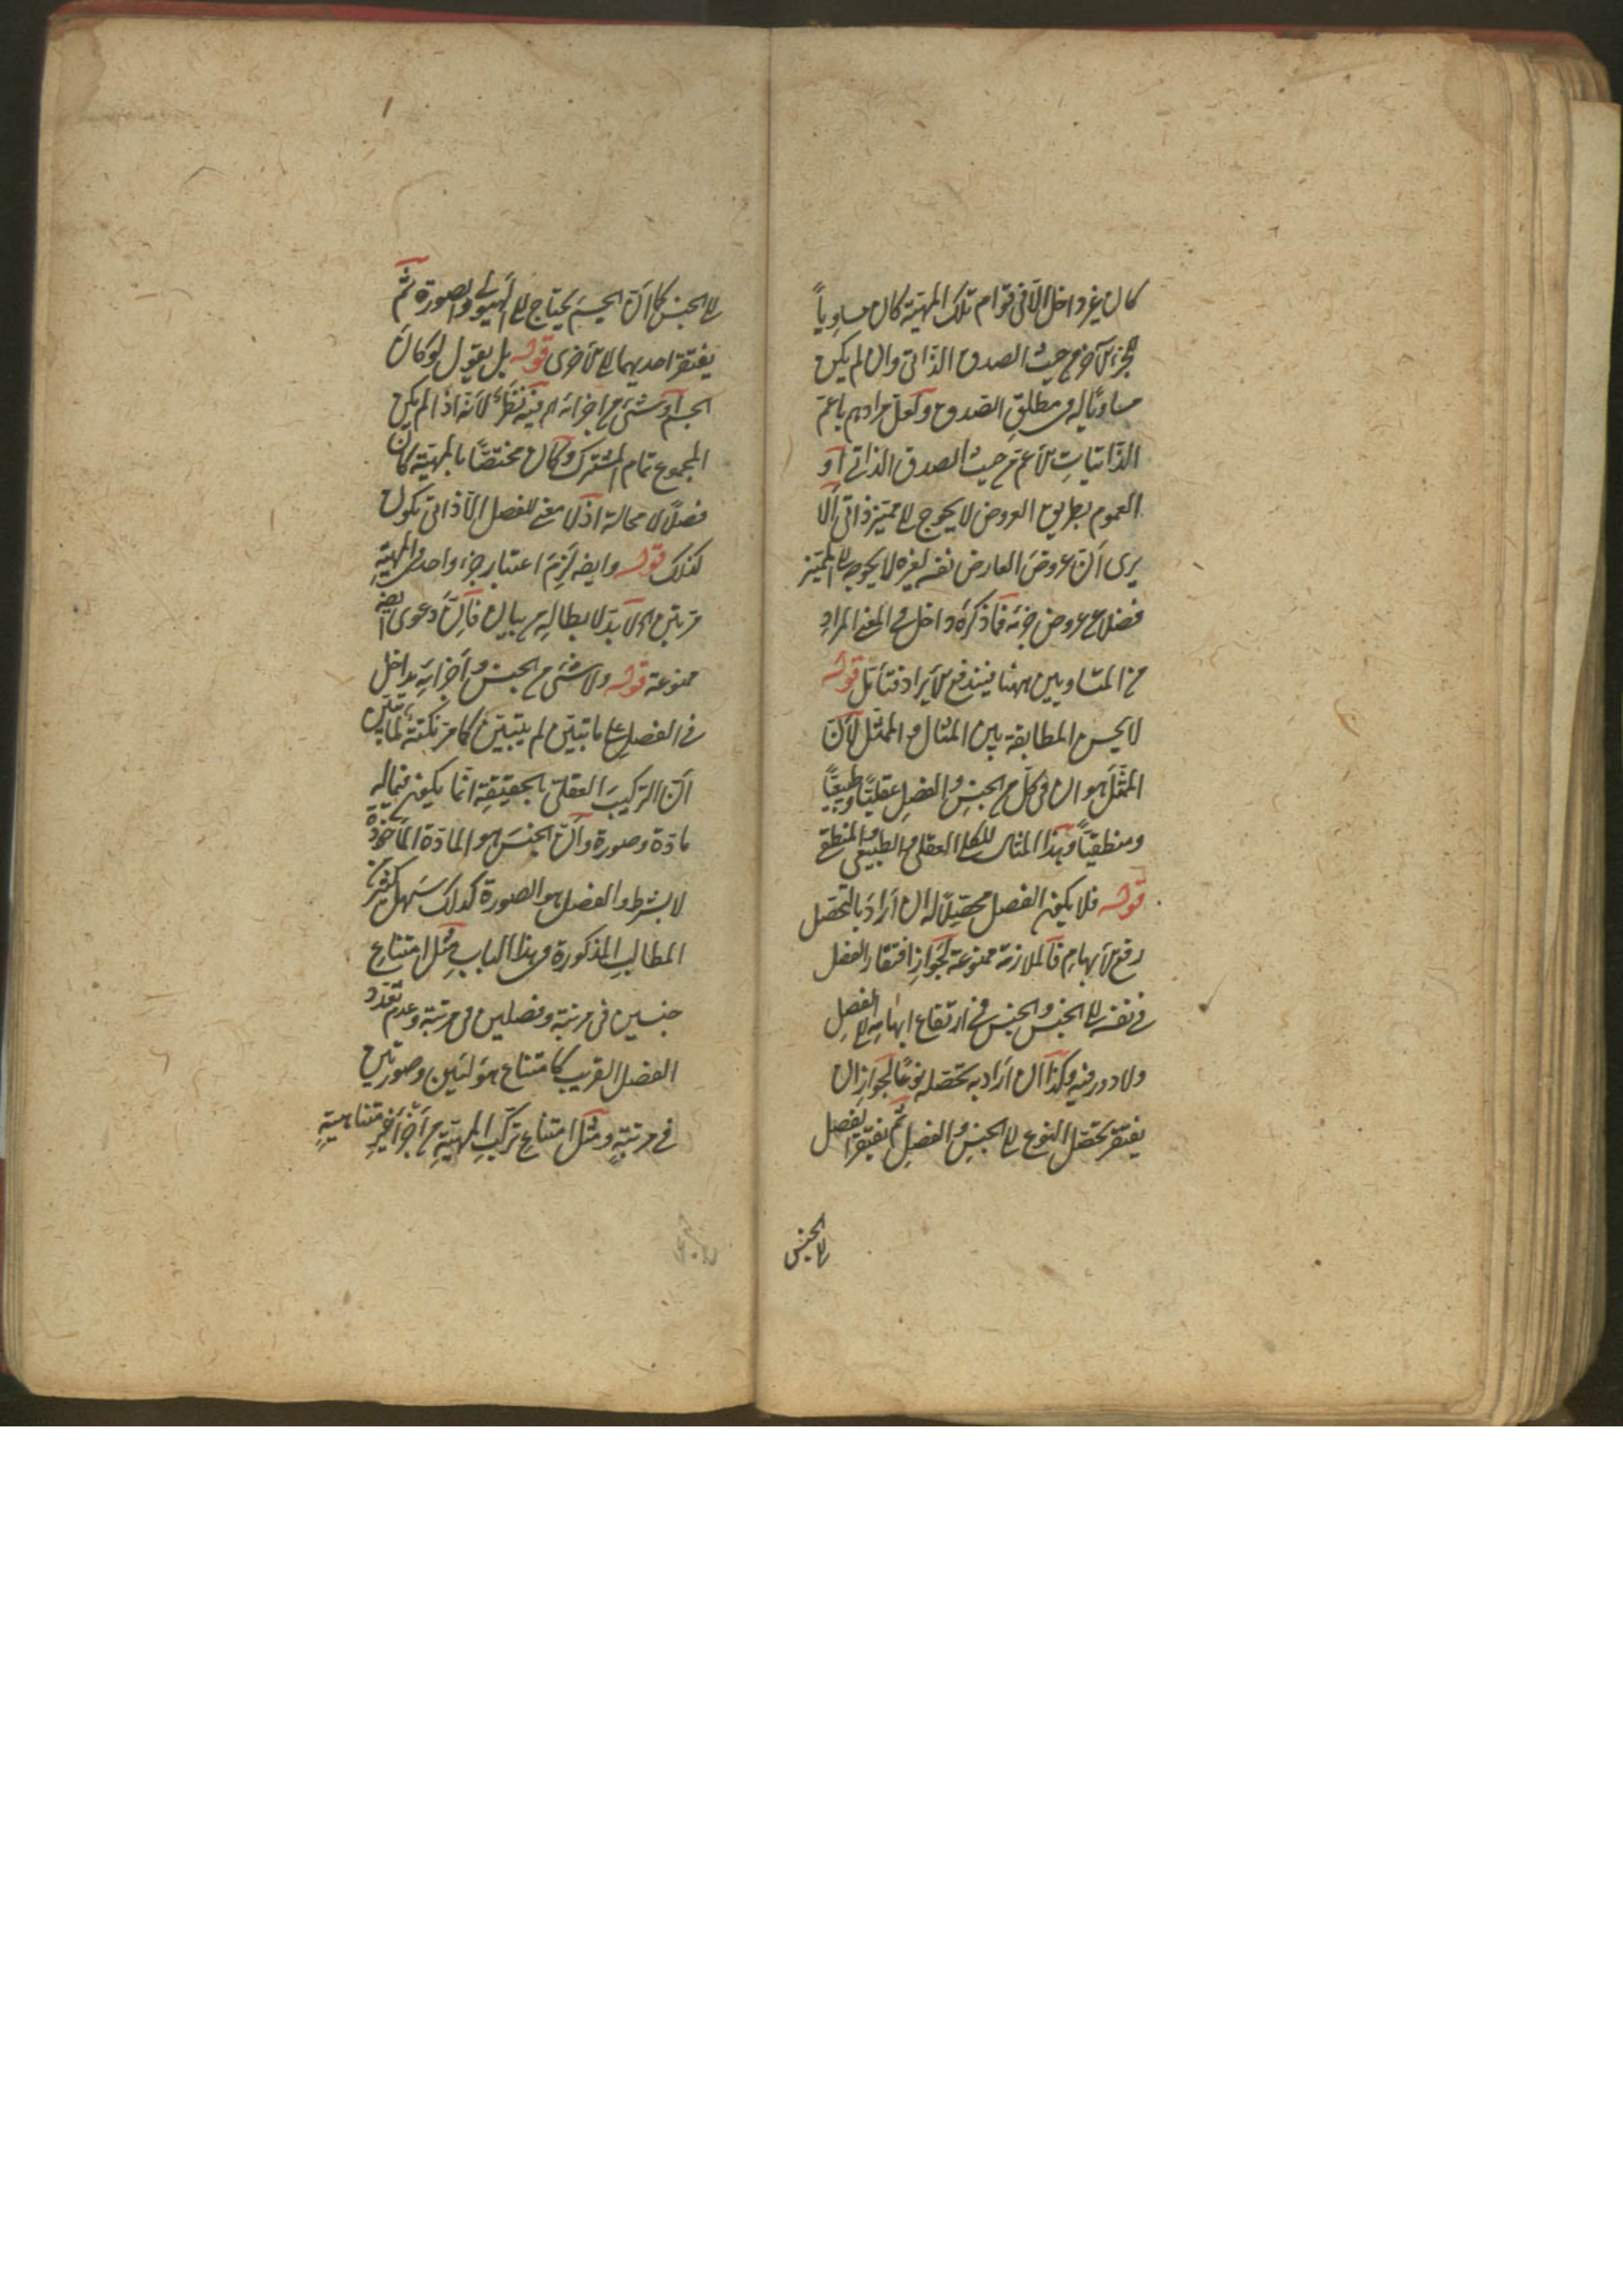 كان غير داخل الا فى قوام تلك المهيّة كان مساوياً
للجزء الآخر من حيث الصدق الذاتى وان لم يكن
مساويًا له فى مطلق الصدق ولعلّ مرادهم باعمّ
الذّاتيّاتِ الاعمّ من حيث الصدق الذاتى او
العموم بطريق العروض لا يحوج الى مميّز ذاتى الا
يرى أنّ عروضَ العارض نفسه لغيره لا يحوجه الى المميّز
فضلا عن عروض جزئه فما ذكرهُ داخل فى المعنى المرادِ
من المتساويين ههنا فيندفع الايراد فتأمّل قوله
لا يحسن المطابقة بين المثال والممثّل لأنّ
الممثّلَ هو ان فى كلّ من الجنسِ والفصلِ عقليّاً وطبيعيّاً
ومنطقيّاً وهذا المثال للكلى العقلى والطبيعى والمنطقى
قوله فلا يكون الفصل محصّلا له ان أرادَ بالتحصّل
رفع الابهامِ فالملازمة ممنوعة لجوازِ افتقار الفصل
فى نفسه الى الجنس والجنس فى ارتفاع ابهامه الى الفصلِ
ولا دور فيه وكذا ان أراد به تحصّله نوعًا لجوازِ ان
يفتقر تحصّل النوع الى الجنسِ والفصلِ ثم يفتقر الفصل
الى الجنس
الى الجنس كما انّ الجسمَ يحتاج الى الهيولى والصورة ثمّ
يفتقر احديهما الى الاخرى قوله بل يقول لو كانَ
الجسم او شئ من اجزائه اه فيه نظرٌ لانّه اذا لم يكن
المجموع تمام المشترك وكان مختصّاً بالمهيّة كان
فصلاً لا محالة اذ لا معنى للفصل الا ذاتى يكون
كذلك قوله وايضا لزمَ اعتبار جزء واحد فى المهيّةِ
مرّتين اه لا بدّ لابطالهِ من بيان فانّ دعوى ايضا
ممنوعة قوله ولا شئ من الجنس واجزائِه بداخل
فى الفصلِ على ما تبيّن لم يتبيّن كما مرّ نكتةٌ لمّا تبيّن
أنّ التركيبَ العقلىّ بالحقيقة انّما يكون فيما له
مادّة وصورة وانّ الجنسَ هو المادّة المأخوذة
لا بشرط والفصل هو الصورة كذلك سَهل كثير من
المطالبِ المذكورة فى هذا الباب مثل امتناع
جنسين فى مرتبة وفصلين فى مرتبة وعدم تعدّد
الفصل القريب كامتناع هيولتين وصورتين
فى مرتبةٍ ومثل امتناع تركّبِ المهيّةِ من أجزاءٍ غيرِ متناهيةٍ